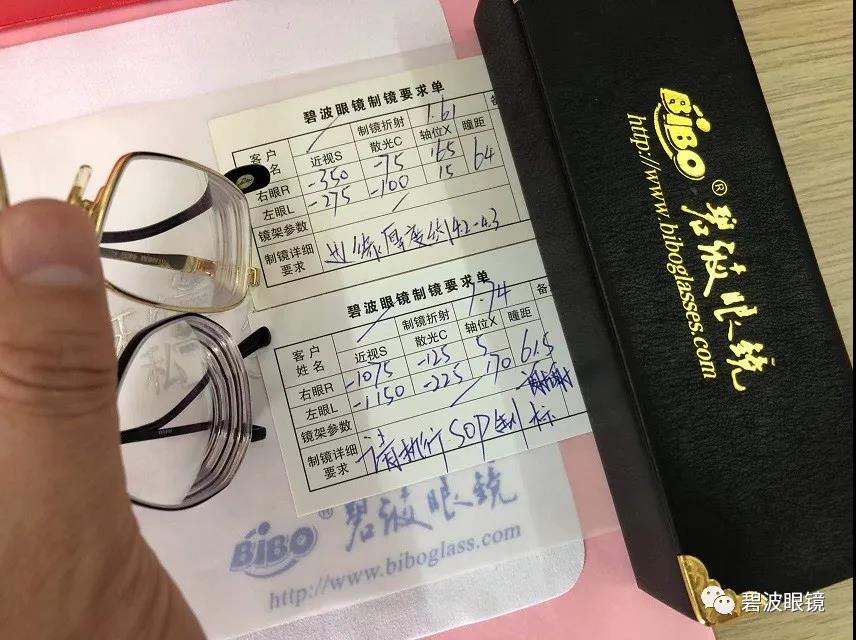 碧波眼镜制镜要求单
客户姓名 近视S 制镜折射 1.61 散光C 轴位X 瞳距
右眼R -350 -75 165 64
左眼L -275 -100 15
镜架参数
制镜详细要求 边缘厚度约4.2-4.3
碧波眼镜制镜要求单
客户姓名 近视S 制镜折射 1.74 散光C 轴位X 瞳距 备
右眼R -1075 -125 5 61.5
左眼L -1150 -225 170
镜架参数 谢谢
制镜详细要求 请执行SOP制标
BiBO® 碧波眼镜
http://www.biboglass.com
BiBO® 碧波眼镜
http://www.biboglasses.com
碧波眼镜